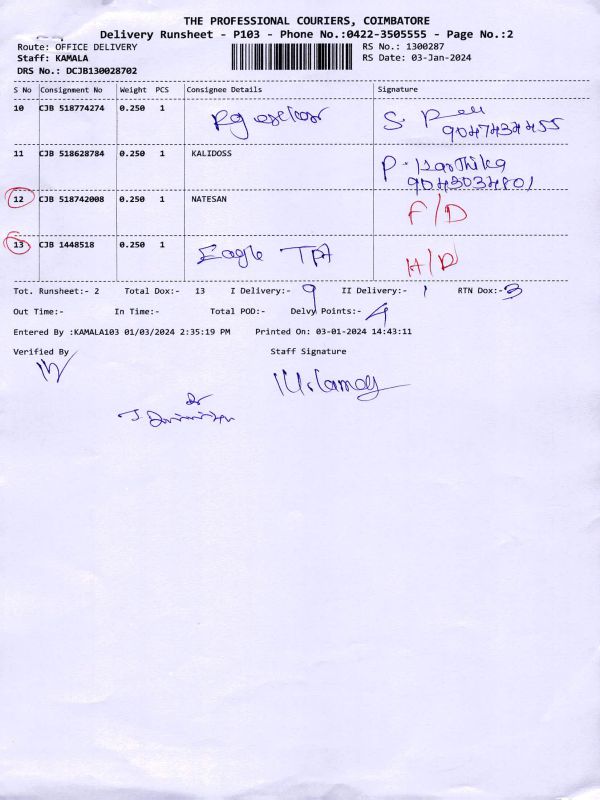 THE PROFESSIONAL COURIERS, COIMBATORE
Delivery Runsheet - P103 - Phone No.:0422-3505555 - Page No.:2
Route: OFFICE DELIVERY RS No.: 1300287
Staff: KAMALA RS Date: 03-Jan-2024
DRS No.: DCJB130028702
S No Consignment No Weight PCS Consignee Details Signature
10 CJB 518774274 0.250 1 S.
11 CJB 518628784 0.250 1 KALIDOSS P. Karthika
9043034801
12 CJB 518742008 0.250 1 NATESAN F/D
13 CJB 1448518 0.250 1 Eagle TPA H/D
Tot. Runsheet:- 2 Total Dox:- 13 I Delivery:- 9 II Delivery:- 1 RTN Dox:- 3
Out Time:- In Time:- Total POD:- Delvy Points:- 4
Entered By :KAMALA103 01/03/2024 2:35:19 PM Printed On: 03-01-2024 14:43:11
Verified By Staff Signature